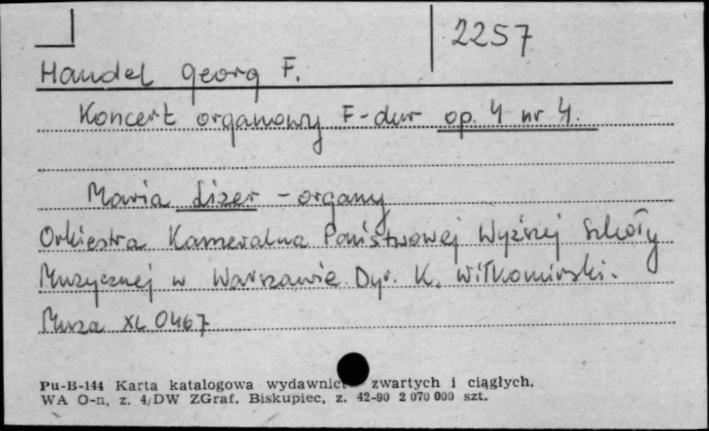 2257
Handel Georg F.
Koncert organowy F-dur op. 4 nr 4.
Maria Lizer - organy
Orkiestra Kameralna Państwowej Wyższej Szkoły
Muzycznej w Warszawie. Dyr. K. Wiłkomirski.
Muza XL 0467
Pu-B-144 Karta katalogowa wydawnictw zwartych i ciągłych.
WA O-n, z. 4/DW ZGraf. Biskupiec, z. 42-90 2 070 000 szt.